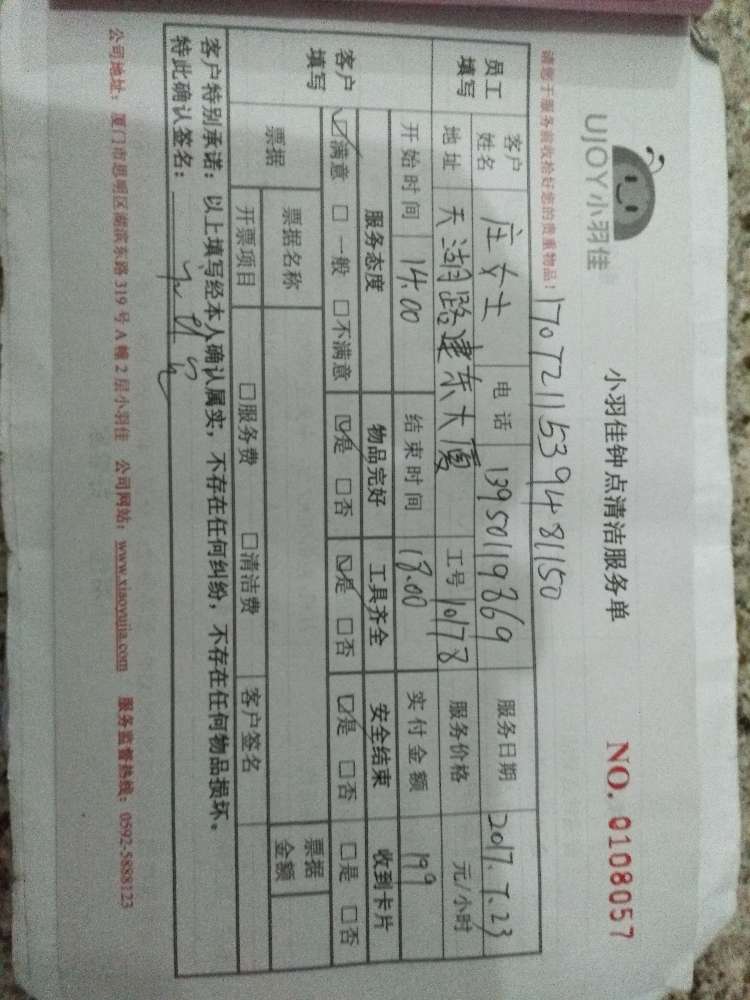 UJOY小羽佳
小羽佳钟点清洁服务单
NO. 0108057
请您于服务前收拾好您的贵重物品!
1707211539481150
员工填写 客户姓名 庄女士 电话 13950119869 服务日期 2017.7.23
地址 天湖路建东大厦 工号 10178 服务价格 元/小时
开始时间 14.00 结束时间 18.00 实付金额 199
客户填写 服务态度 物品完好 工具齐全 安全结束 收到卡片
☑满意 □一般 □不满意 ☑是 □否 ☑是 □否 ☑是 □否 □是 □否
票据 票据名称 票据金额
开票项目 □服务费 □清洁费 客户签名
客户特别承诺:以上填写经本人确认属实,不存在任何纠纷,不存在任何物品损坏。
特此确认签名:
公司地址:厦门市思明区湖滨东路319号A幢2层小羽佳 公司网站:www.xiaoyujia.com 服务监督热线:0592-5888123